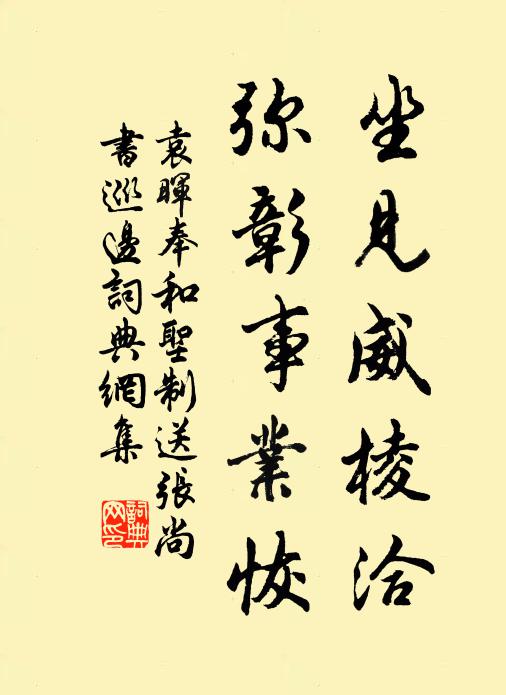 坐見威棱洽
弥彰事業恢
袁暉奉和聖制送張尚
書巡邊詞典網集
詞典
网印